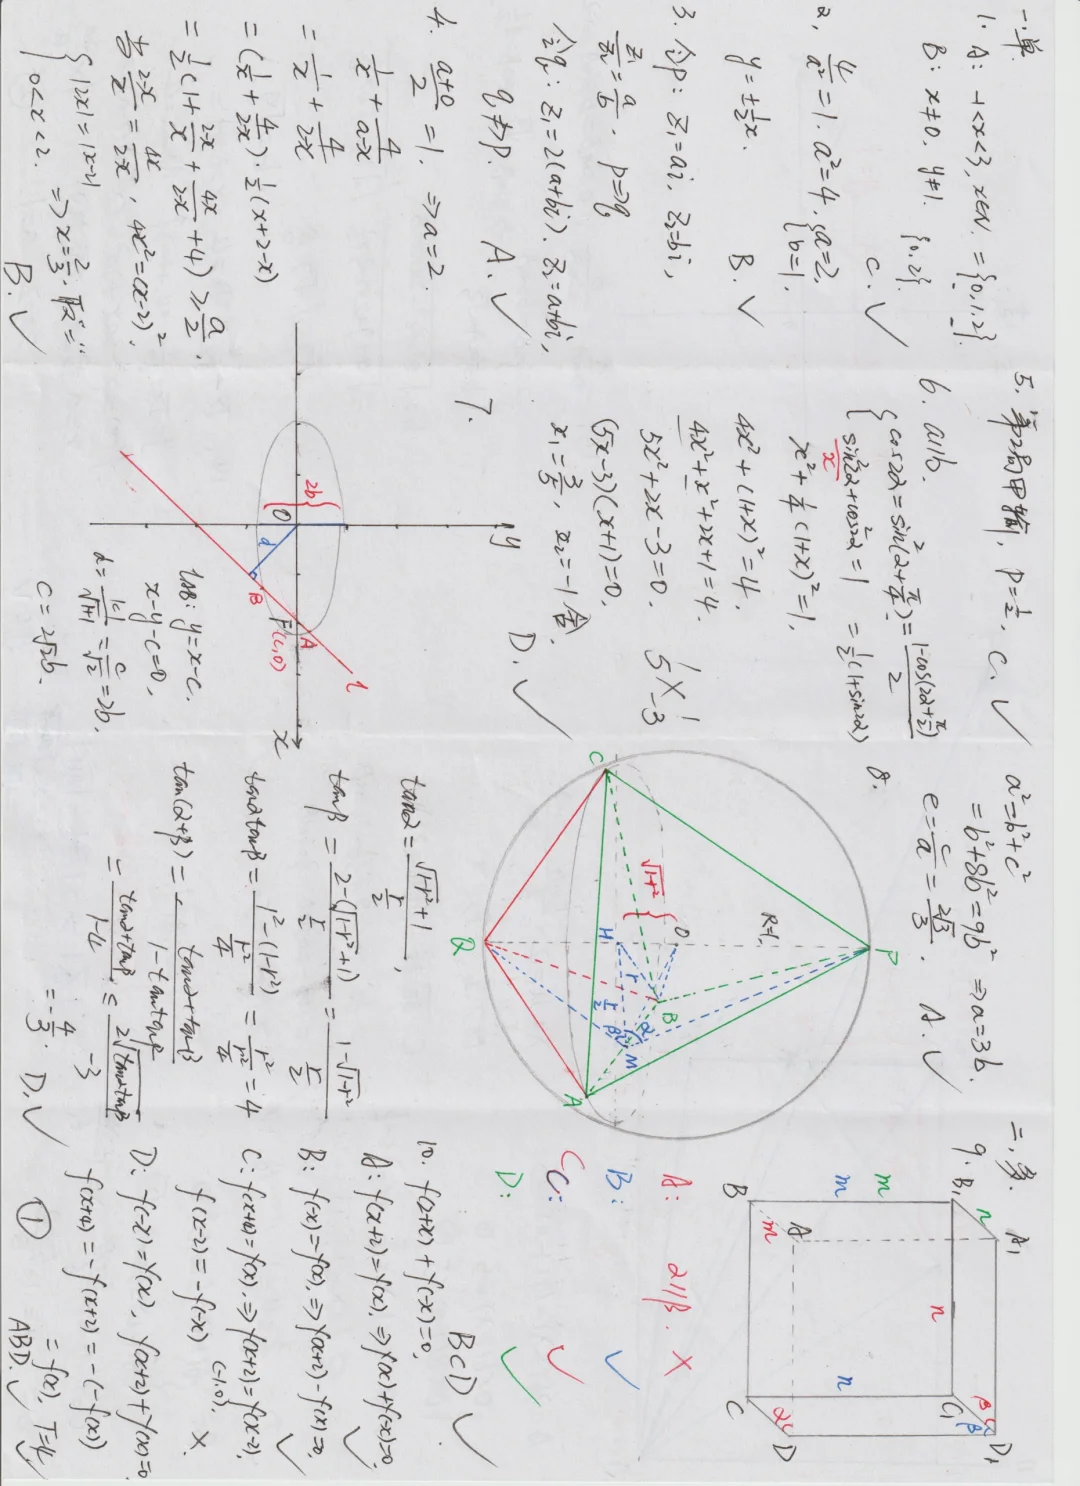 一.单
1. A: -1<x<3, x∈N. = {0,1,2}.
B: x≠0, y≠1. {0,2}.
C. ✓
2. 4/a²=1. a²=4, {a=2, b=1.
y=±1/2x. B. ✓
3. 令p: z₁=ai, z₂=bi,
z₁/z₂=a/b. p⇒q
令q: z₁=2(a+bi). z₂=a+bi,
q⇏p. A. ✓
4. (a+0)/2=1. ⇒a=2.
1/x+4/(a-x)
=1/x+4/(2-x)
=(1/x+4/(2-x))·1/2(x+2-x)
=1/2(1+(2-x)/x+4x/(2-x)+4)≥9/2.
当(2-x)/x=4x/(2-x), 4x²=(x-2)²,
{|2x|=|x-2|
0<x<2. ⇒x=2/3. 取"="
B. ✓
5. 第2局甲输, P=1/2, C. ✓
6. a∥b.
{cos2α=sin²(α+π/4)=(1-cos(2α+π/2))/2
=1/2(1+sin2α)
sin²2α+cos²2α=1
x
x²+1/4(1+x)²=1,
4x²+(1+x)²=4,
4x²+x²+2x+1=4.
5x²+2x-3=0.
(5x-3)(x+1)=0,
x₁=3/5, x₂=-1舍,
D. ✓
1 1
5 -3
7.
y
x
O
2b
d
B
A
F(c,0)
l
lAB: y=x-c.
x-y-c=0,
d=|-c|/√(1+1)=c/√2=2b,
c=2√2b.
a²=b²+c²
=b²+8b²=9b² ⇒a=3b.
e=c/a=2√2/3. A. ✓
8.
P
C
R=1,
O
√(1-r²)
H
r
r/2
B
α
β
M
A
Q
tanα=(√(1-r²)+1)/(r/2),
tanβ=(2-(√(1-r²)+1))/(r/2)=(1-√(1-r²))/(r/2)
tanαtanβ=(1²-(1-r²))/(r²/4)=r²/(r²/4)=4
tan(α+β)=(tanα+tanβ)/(1-tanαtanβ)
=(tanα+tanβ)/(1-4)≤2√(tanαtanβ)/-3
=-4/3. D. ✓
二.多.
9.
B₁
A₁
n
m
m
n
n
B
A
m
C
C₁
D
D₁
α
β
α
β
A: α∥β. ×
B: ✓
C: ✓
D: ✓
BCD ✓
10. f(2+x)+f(-x)=0,
A: f(x+2)=f(x), ⇒f(x)+f(-x)=0, ✓
B: f(-x)=f(x), ⇒f(x+2)-f(x)=0, ✓
C: f(x+4)=f(x), ⇒f(x+2)=f(x-2),
f(x-2)=-f(-x) (-1,0), ×
D: f(-x)=f(x), f(x+2)+f(x)=0
f(x+4)=-f(x+2)=-(-f(x))
=f(x), T=4, ✓
ABD. ✓
①